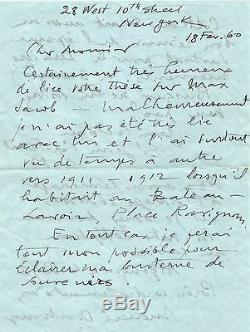 28 West 10th Street
New York
18 Fev. 60
Cher Monsieur
Certainement très heureux
de lire votre thèse sur Max
Jacob — malheureusement
je n'ai pas été très lié
avec lui et l'ai surtout
vu de temps à autre
vers 1911 - 1912 lorsqu'il
habitait au Bateau-
Lavoir Place Ravignan.
En tout cas je ferai
tout mon possible pour
éclairer ma lanterne de
souvenirs.